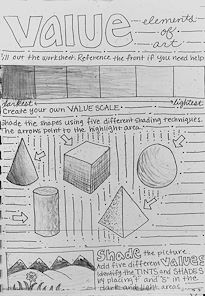 value
elements
of
art
Fill out the worksheet. Reference the front if you need help
darkest
lightest
Create your own VALUE SCALE.
Shade the shapes using five different shading techniques.
The arrows point to the highlight area.
Shade the picture
Add five different values
Identify the TINTS and SHADES
by placing T and "S" in the
dark and light areas.